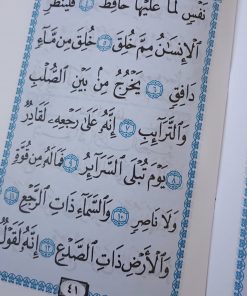 نَفْسٍ لَّمَّا عَلَيْهَا حَافِظٌ ٤ فَلْيَنظُرِ
ٱلْإِنسَٰنُ مِمَّ خُلِقَ ٥ خُلِقَ مِن مَّآءٍ
دَافِقٍ ٦ يَخْرُجُ مِنۢ بَيْنِ ٱلصُّلْبِ
وَٱلتَّرَآئِبِ ٧ إِنَّهُۥ عَلَىٰ رَجْعِهِۦ لَقَادِرٌ
٨ يَوْمَ تُبْلَى ٱلسَّرَآئِرُ ٩ فَمَا لَهُۥ مِن قُوَّةٍ
وَلَا نَاصِرٍ ١٠ وَٱلسَّمَآءِ ذَاتِ ٱلرَّجْعِ ١١
وَٱلْأَرْضِ ذَاتِ ٱلصَّدْعِ ١٢ إِنَّهُۥ لَقَوْلٌ
٤١